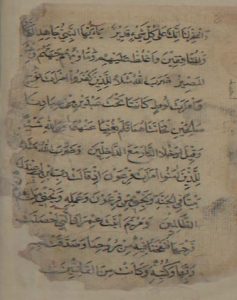 واغفر لنا انك على كل شىء قدير يايها النبى جاهد الكفار
والمنافقين واغلظ عليهم وماويهم جهنم وبئس
المصير ضرب الله مثلا للذين كفروا امرات نوح
وامرات لوط كانتا تحت عبدين من عبادنا
صالحين فخانتاهما فلم يغنيا عنهما من الله شيئا
وقيل ادخلا النار مع الداخلين وضرب الله مثلا
للذين امنوا امرات فرعون اذ قالت رب ابن لى عندك
بيتا فى الجنة ونجنى من فرعون وعمله ونجنى من القوم
الظالمين ومريم ابنت عمران التى احصنت
فرجها فنفخنا فيه من روحنا وصدقت بكلمات
ربها وكتبه وكانت من القانتين